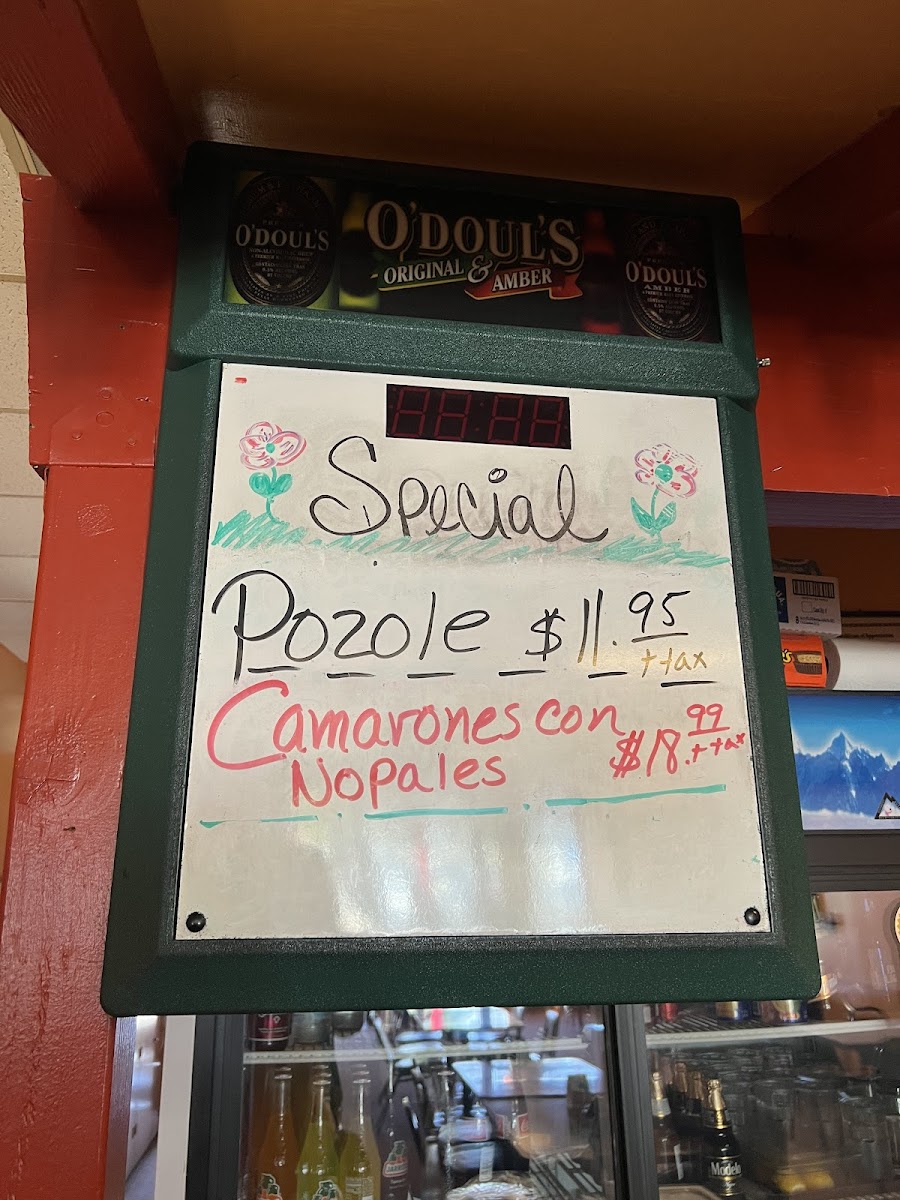 O'DOUL'S
ORIGINAL & AMBER
O'DOUL'S
O'DOUL'S
AMBER
Special
Pozole $11.95
+ tax
Camarones con
Nopales $18.99
+ tax
Modelo